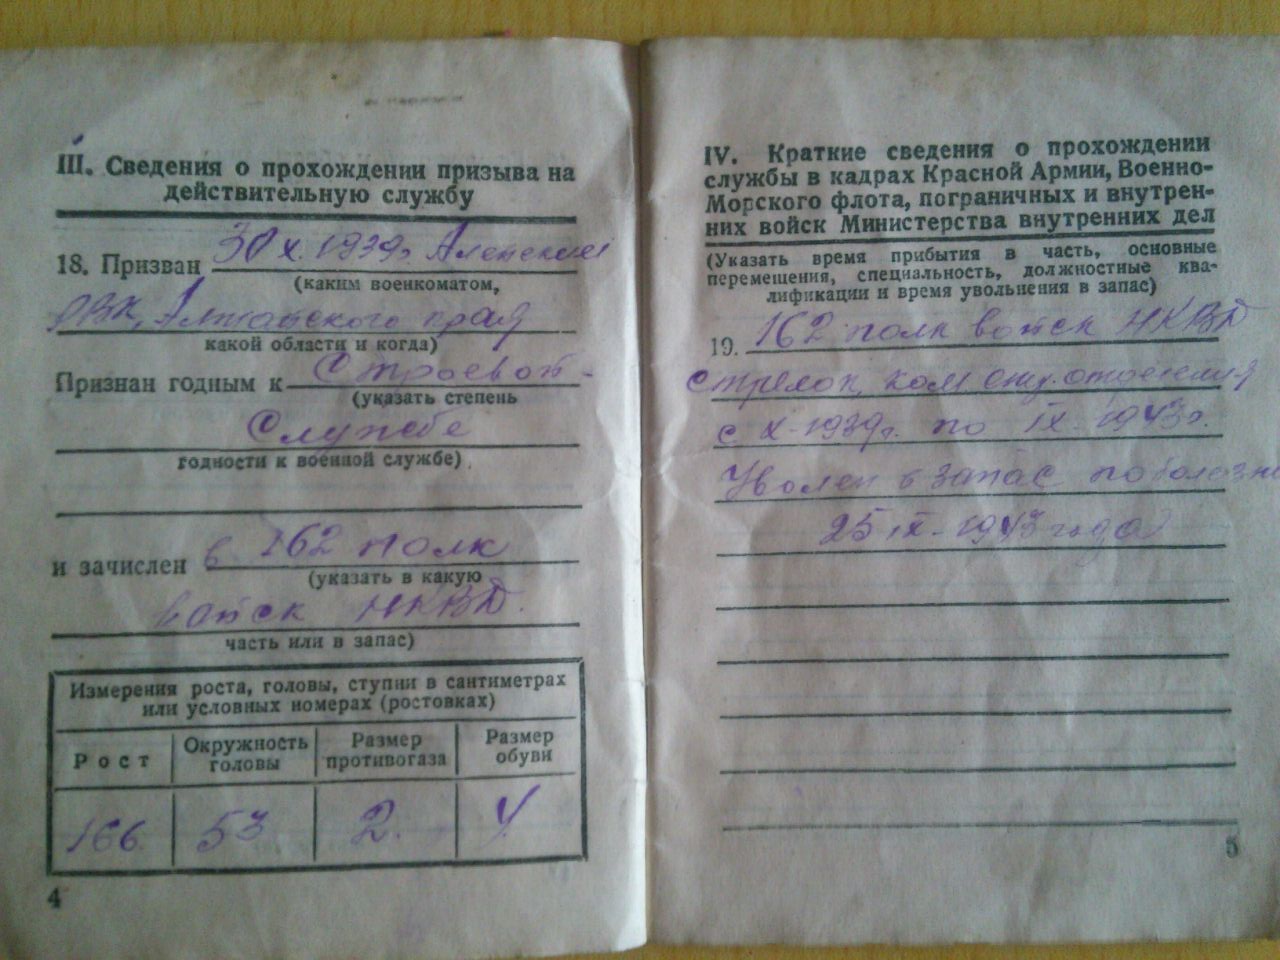 III. Сведения о прохождении призыва на
действительную службу
18. Призван 30 X. 1939г. Алейским
(каким военкоматом,
РВК, Алтайского края
какой области и когда)
Признан годным к Строевой
(указать степень
Службе
годности к военной службе)
и зачислен в 162 полк
(указать в какую
войск НКВД.
часть или в запас)
Измерения роста, головы, ступни в сантиметрах
или условных номерах (ростовках)
Рост Окружность головы Размер противогаза Размер обуви
166. 53 2.
4
IV. Краткие сведения о прохождении
службы в кадрах Красной Армии, Военно-
Морского флота, пограничных и внутрен-
них войск Министерства внутренних дел
(Указать время прибытия в часть, основные
перемещения, специальность, должностные ква-
лификации и время увольнения в запас)
19. 162 полк войск НКВД
стрелок, ком отделения
с X-1939г. по IX. 1943г.
Уволен в запас по болезни
25 IX-1943 года
5